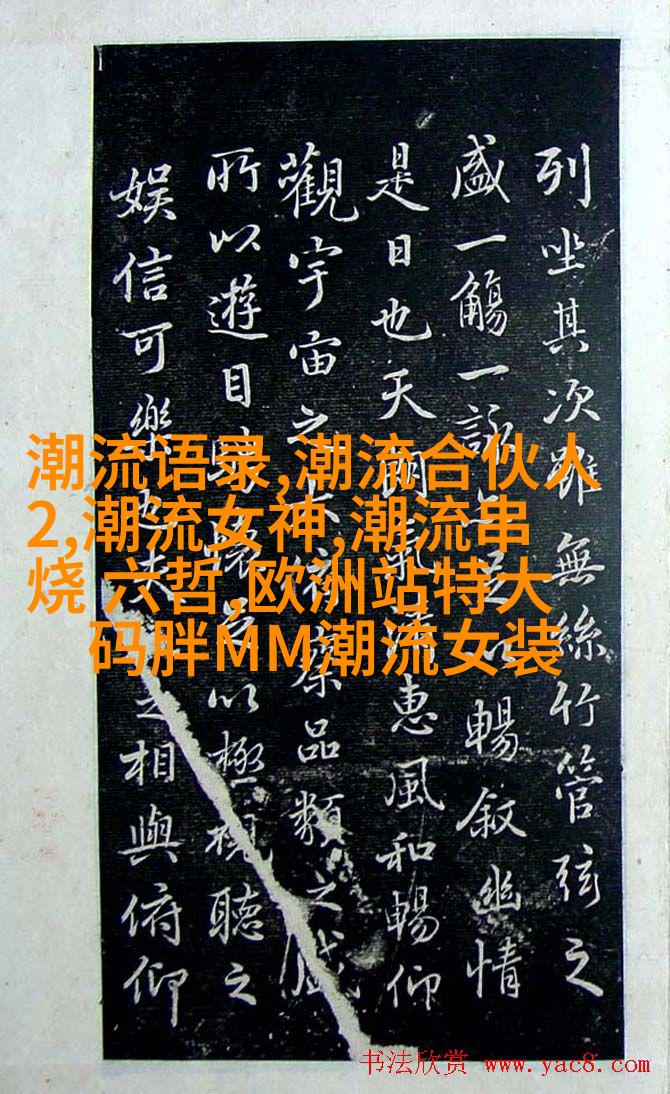 列坐其次雖無絲竹管弦之
盛一觴一詠亦足以暢叙幽情
是日也天朗氣清惠風和暢仰
觀宇宙之大俯察品類之盛
所以遊目騁懷足以極視聽之
娱信可樂也夫人之相與俯仰
潮流语录,潮流合伙人
2,潮流女神,潮流串
烧 六哲,欧洲站特大
码胖MM潮流女装
书法欣赏 www.yac8.com